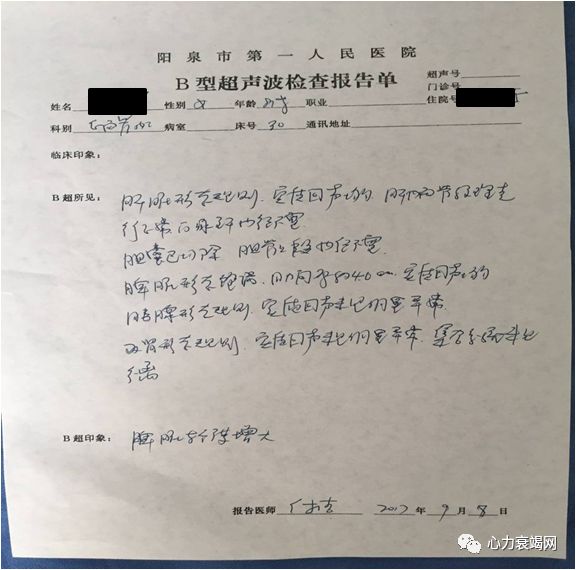 阳泉市第一人民医院
B型超声波检查报告单
超声号
门诊号
姓名 性别 女 年龄 职业 住院号
科别 病室 床号 30 通讯地址
临床印象：
B超所见： 肝脏形态规则，实质回声均匀，肝内管系走
行正常，门脉主干内径不宽
胆囊已切除 胆管上段内径不宽
脾脏形态饱满，肋间厚约4.0cm，实质回声均匀
胰腺形态规则，实质回声未见明显异常
双肾形态规则，实质回声未见明显异常，集合系统未见
分离
B超印象： 脾脏轻度增大
报告医师 2017 年 9 月 8 日
心力衰竭网